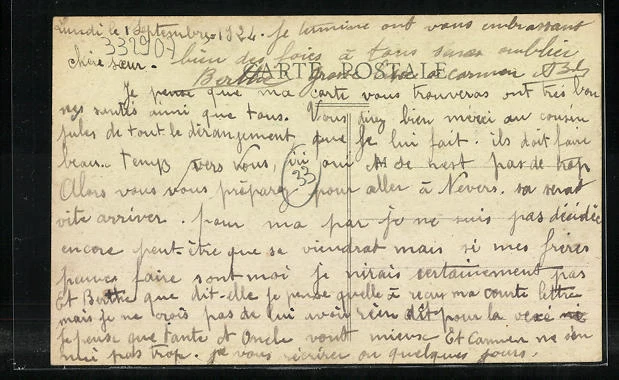 Lundi le 1 Septembre 1924. Je termine ont vous embrassant
332907 bien des foies à tous sans oublier
chère sœur.
Berthe grosse bise a carmen
CARTE POSTALE
Je pense que ma carte vous trouveras ont très bon
santés ainsi que tous. Vous direz bien merci au cousin
jules de tout le dérangement que je lui fait. ils doit faire
beau temps vers vous, ici oui se nest pas de trop
33
Alors vous vous préparez pour aller à Nevers. sa serat
vite arriver. pour ma par je ne suis pas décidée
encore peut-être que sa viendrat mais si mes frères
faire sont moi je nirais certainement pas
Et Berthe que dit-elle je pense quelle à reçu ma courte lettre
mais je ne crois pas de lui avoir rien dit pour la
je pense que tante et Oncle vont mieux Et Carmen ne sen
pas trop. je vous récrirer ou quelques jours.